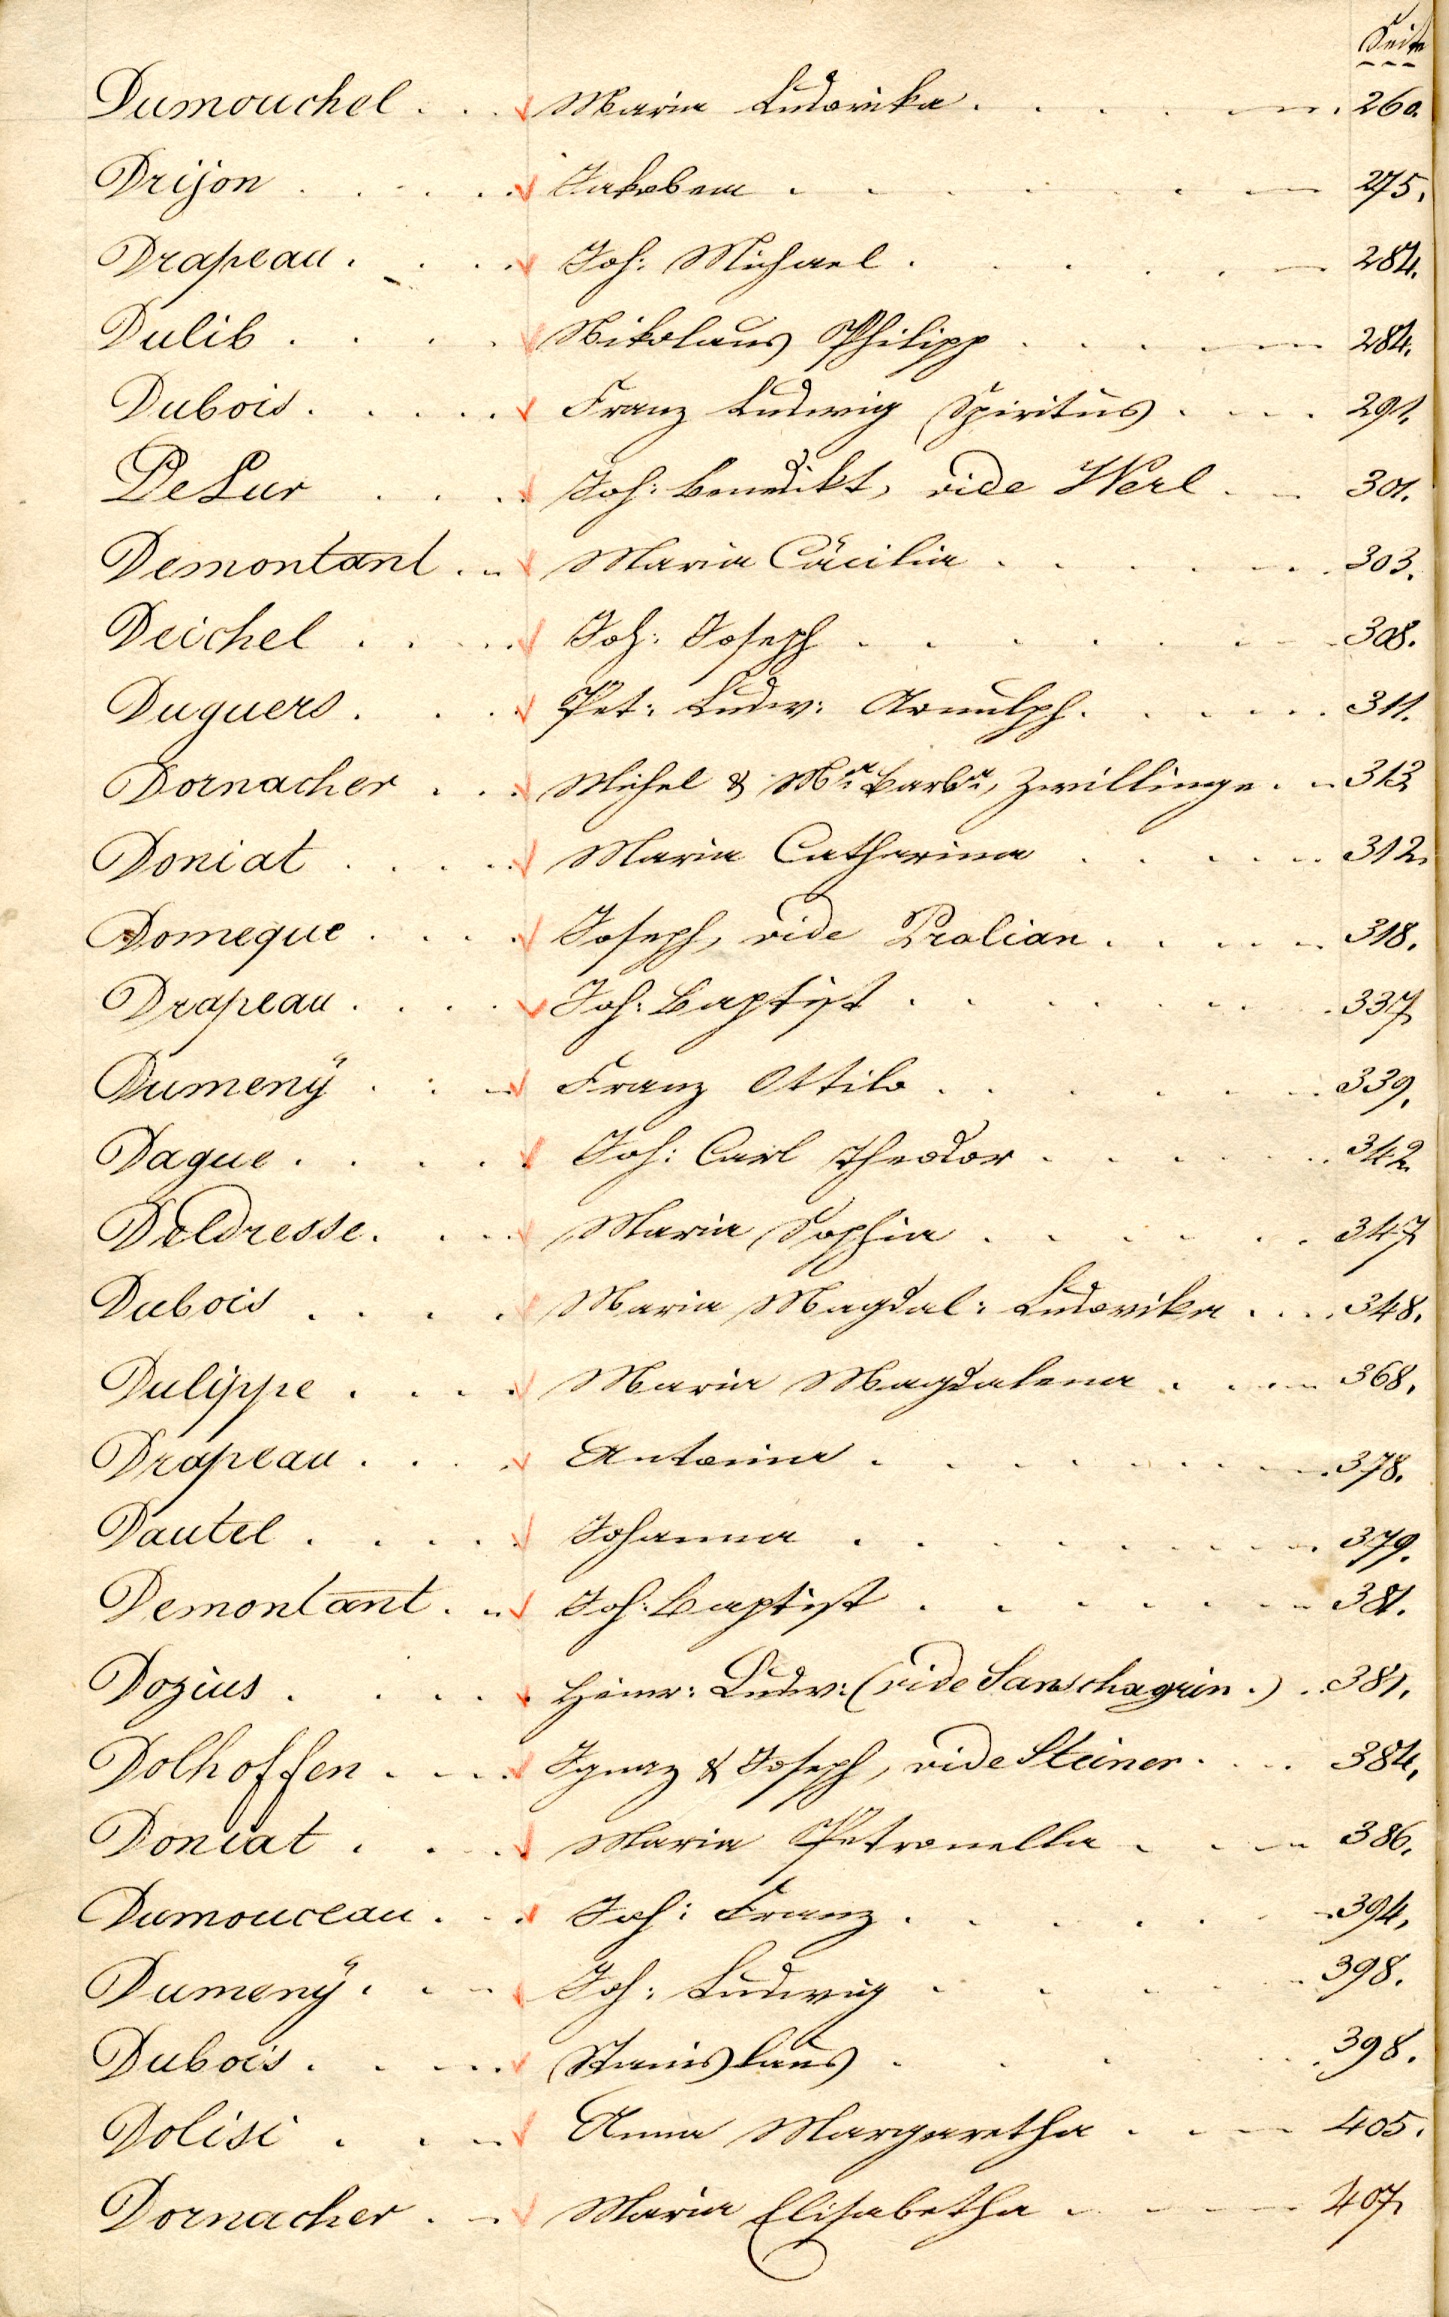 Seite
Dumouchel . . . Maria Ludovika . . . . . 260.
Drijon . . . . . Jakobea . . . . . . 275.
Drapeau . . . . Joh: Michael . . . . . 284.
Dulib . . . . Nikolaus Philipp . . . . . 284.
Dubois . . . . . Franz Ludwig Spiritus . . . . 291.
DeLur . . . Joh: Benedikt, vide Werl . . 301.
Demontant . . Maria Cäcilia . . . . . . 303.
Deichel . . . . Joh: Joseph . . . . . . 308.
Duguers . . . Pet: Ludw: Arnulph . . . . . 311.
Dornacher . . . Michel & Mª Barbª, Zwillinge . . 312
Doniat . . . . Maria Catharina . . . . . 312.
Domeque . . . . Joseph, vide Pralian . . . . . 318.
Drapeau . . . . Joh: Baptist . . . . . . 337
Dumenÿ . . . Franz Ottilo . . . . . . 339.
Dague . . . . . Joh: Carl Theodor . . . . . . 342
Doldresse . . . . Maria Sophia . . . . . . 347
Dubois . . . . Maria Magdal: Ludovika . . . . 348.
Dulippe . . . . Maria Magdalena . . . . 368.
Drapeau . . . . Antonia . . . . . . . 378.
Dautel . . . . Johanna . . . . . . . 379.
Demontant . . Joh: Baptist . . . . . . . 381.
Dozius . . . . . Heinr: Ludw: (vide Sanschagrin.) . . 381.
Dolhoffen . . . . Ignaz & Joseph, vide Steiner . . . . 384.
Doniat . . . Maria Petronella . . . . 386.
Dumouceau . . . Joh: Franz . . . . . . 394.
Dumenÿ . . . Joh: Ludwig . . . . . 398.
Dubois . . . . . Stanislaus . . . . . . 398.
Dolisi . . . Anna Margaretha . . . . 405.
Dornacher . . Maria Elisabetha . . . . 407.